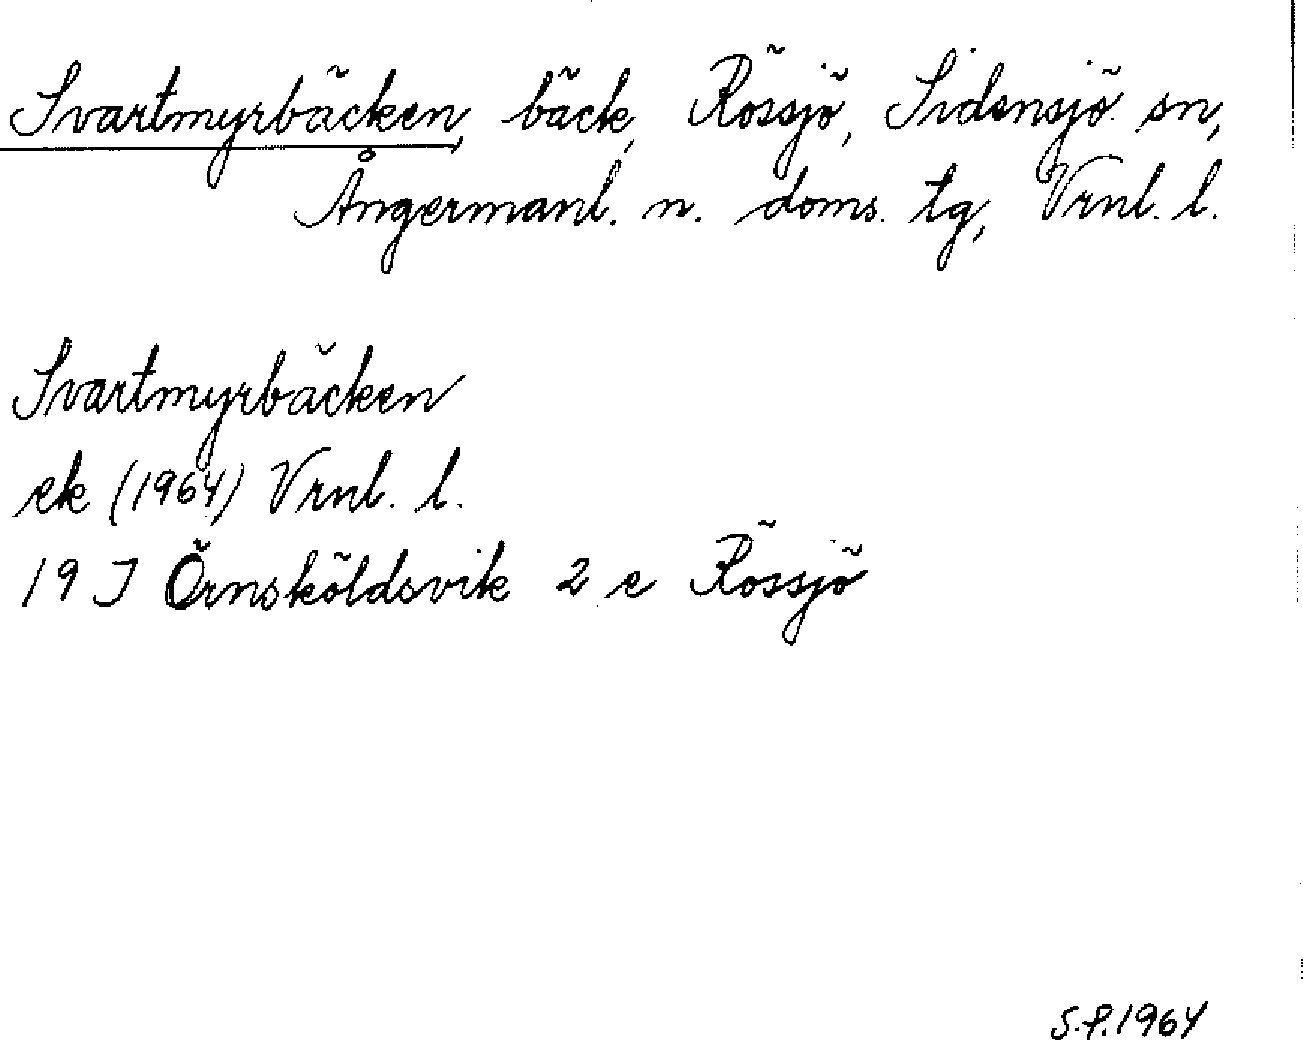 Svartmyrbäcken, bäck, Rössjö, Sidensjö sn,
Ångermanl. n. doms. tg, Vrnl. l.
Svartmyrbäcken
ek (1964) Vrnl. l.
19 J Örnsköldsvik 2 e Rössjö
S.P. 1964